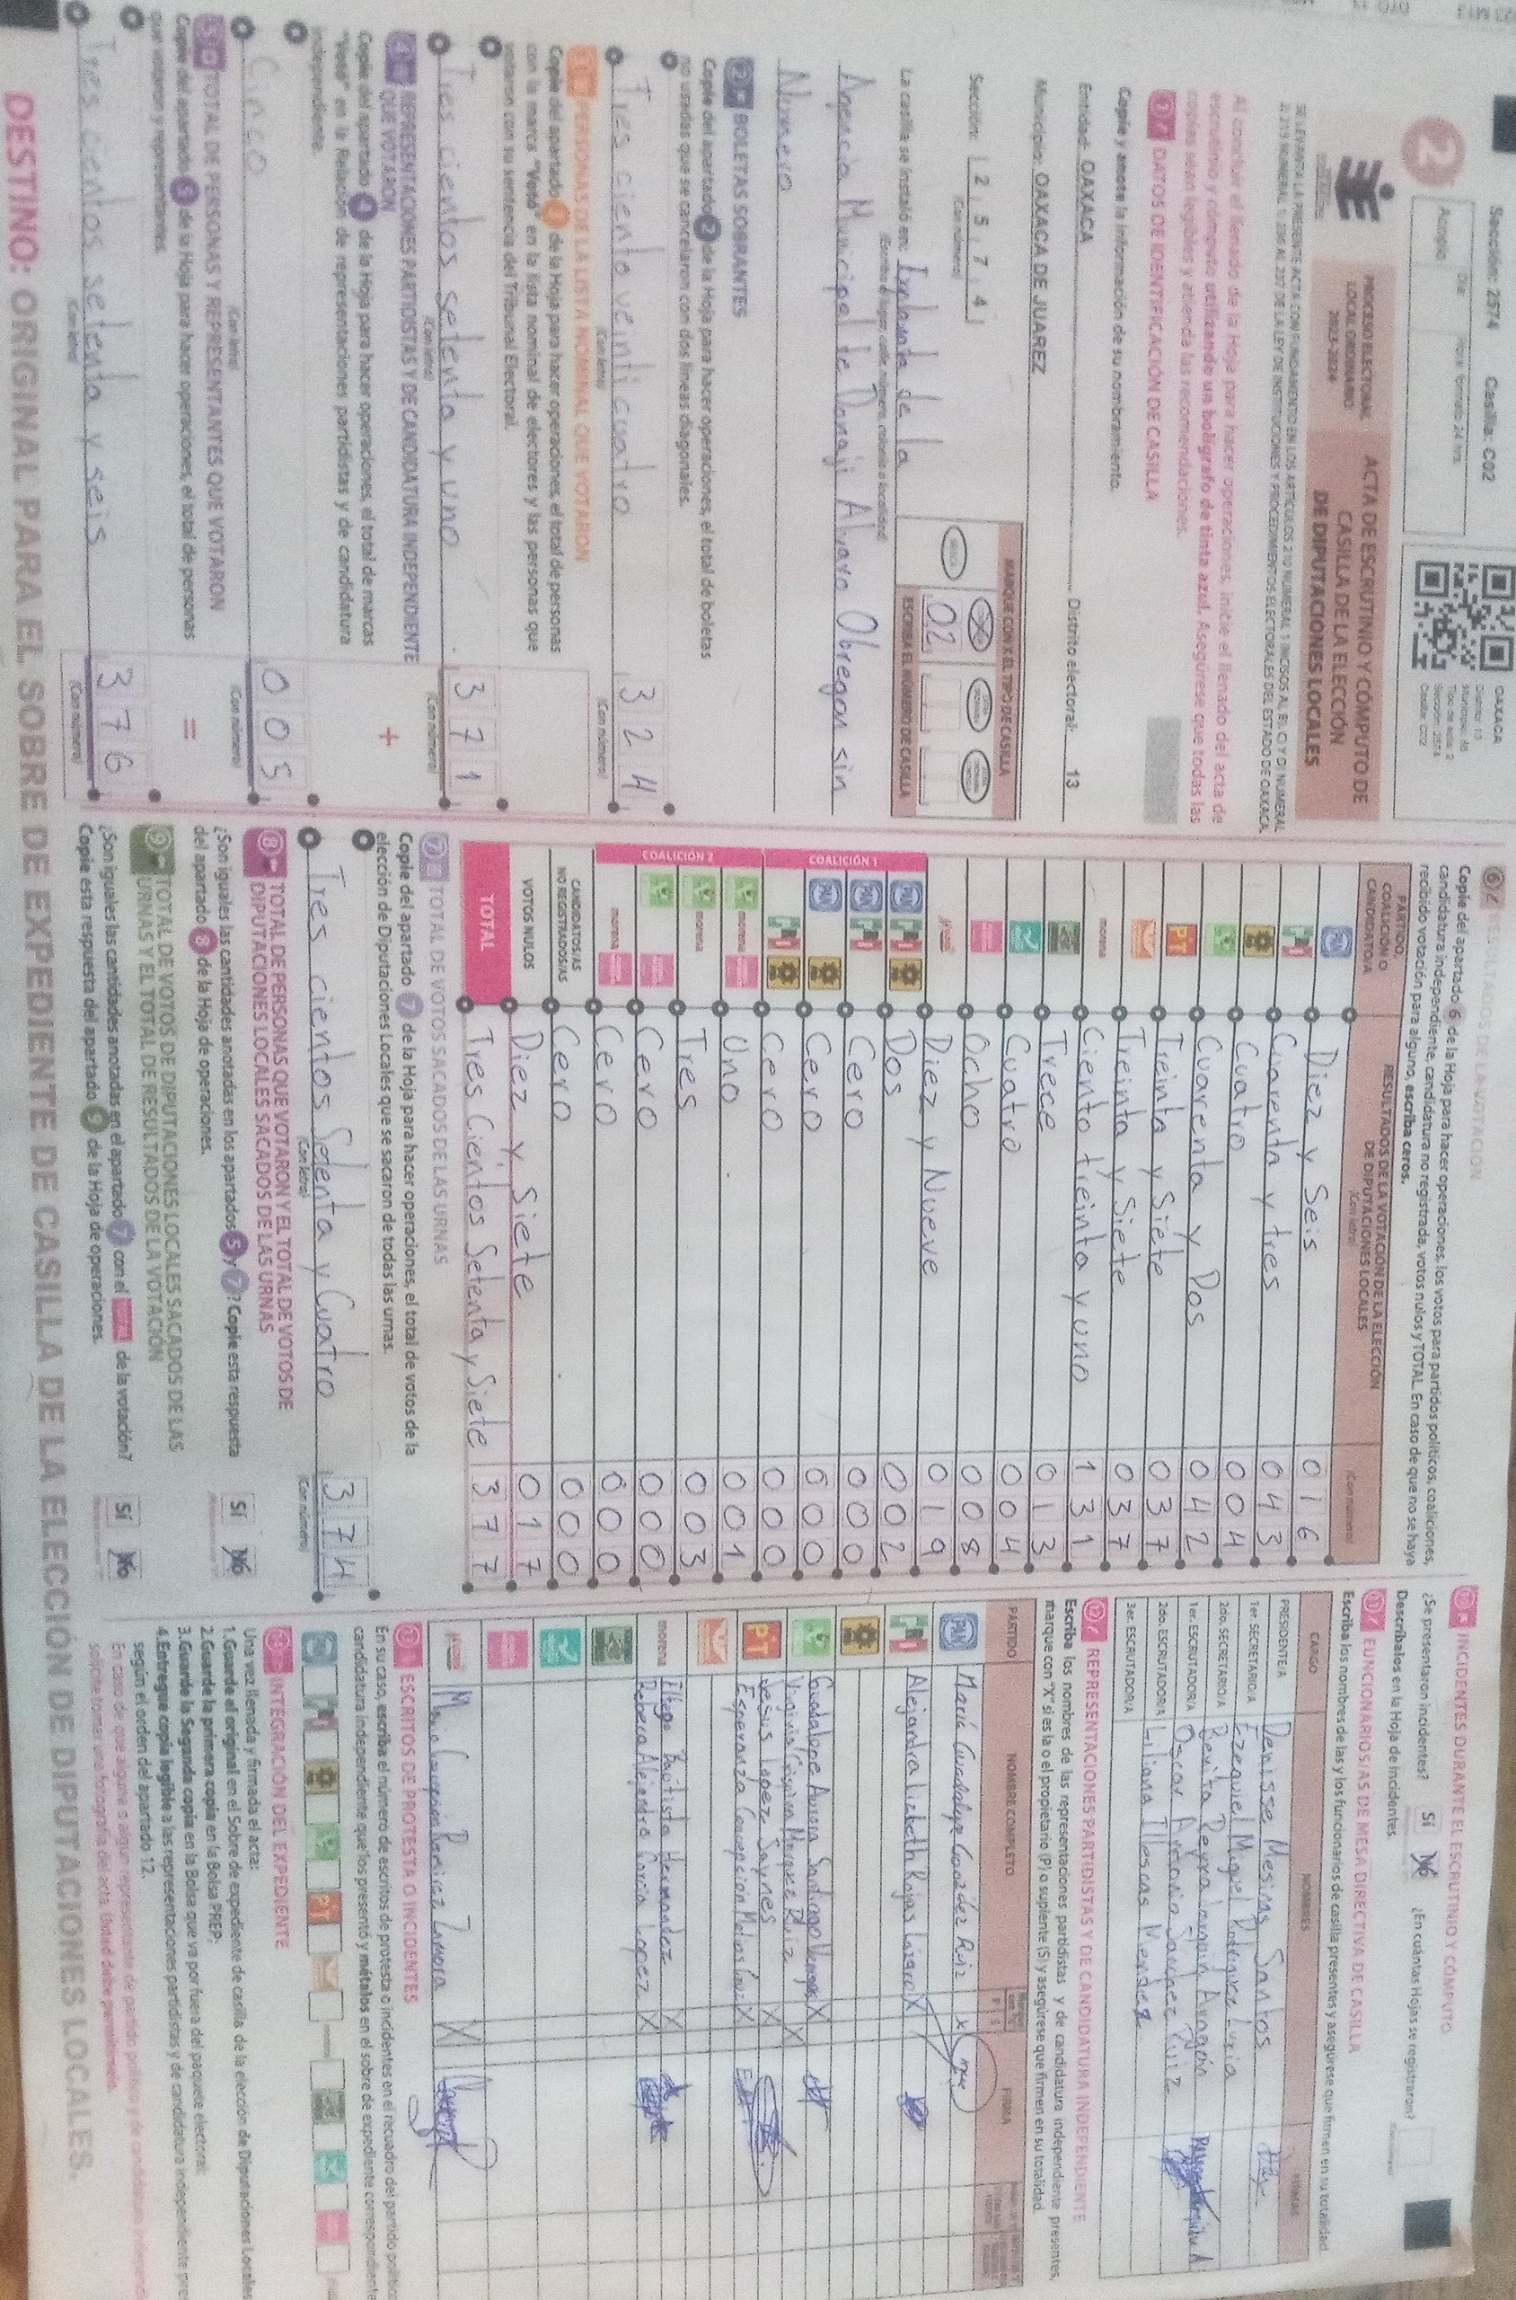 Sección: 2574 Casilla: C02
OAXACA
Distrito: 13
Tipo de acta: 2
Sección: 2574
Casilla: C02
2
Acopio
Día:
Hora: formato 24 hrs.
PROCESO ELECTORAL
LOCAL ORDINARIO
2023-2024
ACTA DE ESCRUTINIO Y CÓMPUTO DE
CASILLA DE LA ELECCIÓN
DE DIPUTACIONES LOCALES
Al concluir el llenado de la Hoja para hacer operaciones, inicie el llenado del acta de
escrutinio y cómputo utilizando un bolígrafo de tinta azul. Asegúrese que todas las
copias sean legibles y atienda las recomendaciones.
1 DATOS DE IDENTIFICACIÓN DE CASILLA
Copie y anote la información de su nombramiento.
Entidad: OAXACA Distrito electoral: 13
Municipio: OAXACA DE JUAREZ
Sección: 2 5 7 4
(Con número)
MARQUE CON X EL TIPO DE CASILLA
ESCRIBA EL NÚMERO DE CASILLA
02
La casilla se instaló en: Explanada de la
(Escriba el lugar, calle, número, colonia o localidad)
Agencia Municipal de Donaji Alvaro Obregon sin
Numero
2 BOLETAS SOBRANTES
Copie del apartado 2 de la Hoja para hacer operaciones, el total de boletas
no usadas que se cancelaron con dos líneas diagonales.
Tres ciento veinti cuatro 3 2 4
(Con letra) (Con número)
3 PERSONAS DE LA LISTA NOMINAL QUE VOTARON
Copie del apartado 3 de la Hoja para hacer operaciones, el total de personas
con la marca "Votó" en la lista nominal de electores y las personas que
votaron con su sentencia del Tribunal Electoral.
Tres cientos setenta y uno 3 7 1
(Con letra) (Con número)
4 REPRESENTACIONES PARTIDISTAS Y DE CANDIDATURA INDEPENDIENTE
QUE VOTARON
+
Copie del apartado 4 de la Hoja para hacer operaciones, el total de marcas
"Votó" en la Relación de representaciones partidistas y de candidatura
independiente.
Cinco 0 0 5
(Con letra) (Con número)
5 TOTAL DE PERSONAS Y REPRESENTANTES QUE VOTARON
=
Copie del apartado 5 de la Hoja para hacer operaciones, el total de personas
que votaron y representantes.
Tres cientos setenta y seis 3 7 6
(Con letra) (Con número)
6 RESULTADOS DE LA VOTACIÓN
Copie del apartado 6 de la Hoja para hacer operaciones, los votos para partidos políticos, coaliciones,
candidatura independiente, candidatura no registrada, votos nulos y TOTAL. En caso de que no se haya
recibido votación para alguno, escriba ceros.
PARTIDO,
COALICIÓN O
CANDIDATO/A
RESULTADOS DE LA VOTACIÓN DE LA ELECCIÓN
DE DIPUTACIONES LOCALES
(Con letra)
(Con número)
PAN Diez y Seis 0 1 6
PRI Cuarenta y tres 0 4 3
Cuatro 0 0 4
Cuarenta y Dos 0 4 2
PT Treinta y Siete 0 3 7
Treinta y Siete 0 3 7
morena Ciento treinta y uno 1 3 1
Trece 0 1 3
Cuatro 0 0 4
Ocho 0 0 8
Diez y Nueve 0 1 9
COALICIÓN 1
PAN PRI Dos 0 0 2
PAN PRI Cero 0 0 0
PAN Cero 0 0 0
PRI Cero 0 0 0
COALICIÓN 2
morena Uno 0 0 1
morena Tres 0 0 3
Cero 0 0 0
morena Cero 0 0 0
CANDIDATOS/AS
NO REGISTRADOS/AS Cero 0 0 0
VOTOS NULOS Diez y Siete 0 1 7
TOTAL Tres Cientos Setenta y Siete 3 7 7
7 TOTAL DE VOTOS SACADOS DE LAS URNAS
Copie del apartado 7 de la Hoja para hacer operaciones, el total de votos de la
elección de Diputaciones Locales que se sacaron de todas las urnas.
Tres cientos Setenta y Cuatro 3 7 4
(Con letra) (Con número)
8 TOTAL DE PERSONAS QUE VOTARON Y EL TOTAL DE VOTOS DE
DIPUTACIONES LOCALES SACADOS DE LAS URNAS
¿Son iguales las cantidades anotadas en los apartados 5 y 7? Copie esta respuesta
del apartado 8 de la Hoja de operaciones.
Sí No
9 TOTAL DE VOTOS DE DIPUTACIONES LOCALES SACADOS DE LAS
URNAS Y EL TOTAL DE RESULTADOS DE LA VOTACIÓN
¿Son iguales las cantidades anotadas en el apartado 7 con el TOTAL de la votación?
Copie esta respuesta del apartado 9 de la Hoja de operaciones.
Sí No
10 INCIDENTES DURANTE EL ESCRUTINIO Y CÓMPUTO
¿Se presentaron incidentes? Sí No ¿En cuántas Hojas se registraron?
Descríbalos en la Hoja de Incidentes
11 FUNCIONARIOS/AS DE MESA DIRECTIVA DE CASILLA
Escriba los nombres de las y los funcionarios de casilla presentes y asegúrese que firmen en su totalidad.
CARGO NOMBRES FIRMAS
PRESIDENTE/A Denisse Mesinas Santos
1er. SECRETARIO/A Ezequiel Miguel Rodriguez Luria
2do. SECRETARIO/A Benita Reyna Aragón
1er. ESCRUTADOR/A Oscar Antonio Sanchez Ruiz
2do. ESCRUTADOR/A Liliana Illescas Mendez
3er. ESCRUTADOR/A
12 REPRESENTACIONES PARTIDISTAS Y DE CANDIDATURA INDEPENDIENTE
Escriba los nombres de las representaciones partidistas y de candidatura independiente presentes,
marque con "X" si es la o el propietario (P) o suplente (S) y asegúrese que firmen en su totalidad.
PARTIDO NOMBRE COMPLETO FIRMA
PAN María Guadalupe González Ruiz X
PRI Alejandra Lizbeth Rojas Lázaro X
Guadalupe Aurora Santiago X
Virginia Marquez Ruiz X
PT Jesus Lopez Saynes X
Esperanza Concepción X
morena Bautista Hernandez X
Rebeca Alejandra Garcia Lopez X
Ramirez Zamora X
13 ESCRITOS DE PROTESTA O INCIDENTES
En su caso, escriba el número de escritos de protesta o incidentes en el recuadro del partido político
candidatura independiente que los presentó y métalos en el sobre de expediente correspondiente
14 INTEGRACIÓN DEL EXPEDIENTE
Una vez llenada y firmada el acta:
1. Guarde el original en el Sobre de expediente de casilla de la elección de Diputaciones Locales
2. Guarde la primera copia en la Bolsa PREP;
3. Guarde la Segunda copia en la Bolsa que va por fuera del paquete electoral;
4. Entregue copia legible a las representaciones partidistas y de candidatura independiente
según el orden del apartado 12.
En caso de que alguna o algún representante de partido político y de candidatura
solicite tomar una fotografía del acta, usted debe permitírselo.
DESTINO: ORIGINAL PARA EL SOBRE DE EXPEDIENTE DE CASILLA DE LA ELECCIÓN DE DIPUTACIONES LOCALES.